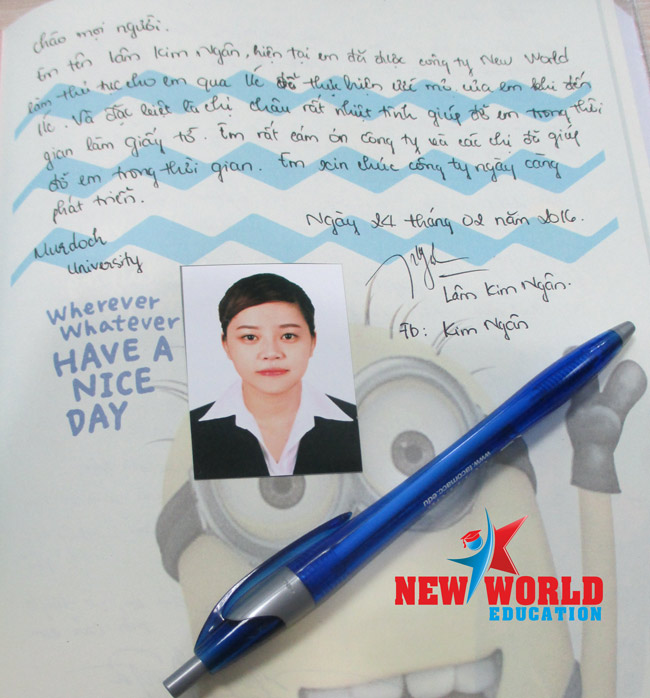 Chào mọi người.
Em tên Lâm Kim Ngân, hiện tại em đã được công ty New World
làm thủ tục cho em qua Úc để thực hiện ước mơ của em khi đến
Úc. Và đặc biệt là chị Châu rất nhiệt tình giúp đỡ em trong thời
gian làm giấy tờ. Em rất cám ơn công ty và các chị đã giúp
đỡ em trong thời gian. Em xin chúc công ty ngày càng
phát triển.
Ngày 24 tháng 02 năm 2016.
Murdoch
University
Lâm Kim Ngân.
Fb: Kim Ngân
Wherever
Whatever
HAVE A
NICE
DAY
www.tacomacc.edu
NEW WORLD
EDUCATION